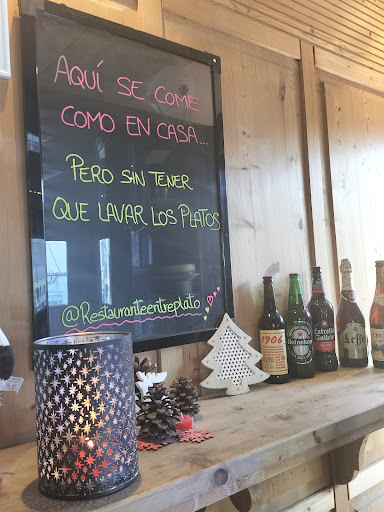 AQUÍ SE COME
COMO EN CASA...
PERO SIN TENER
QUE LAVAR LOS PLATOS
@Restauranteentreplato
1906
Heineken
Estrella
Galicia
Leffe